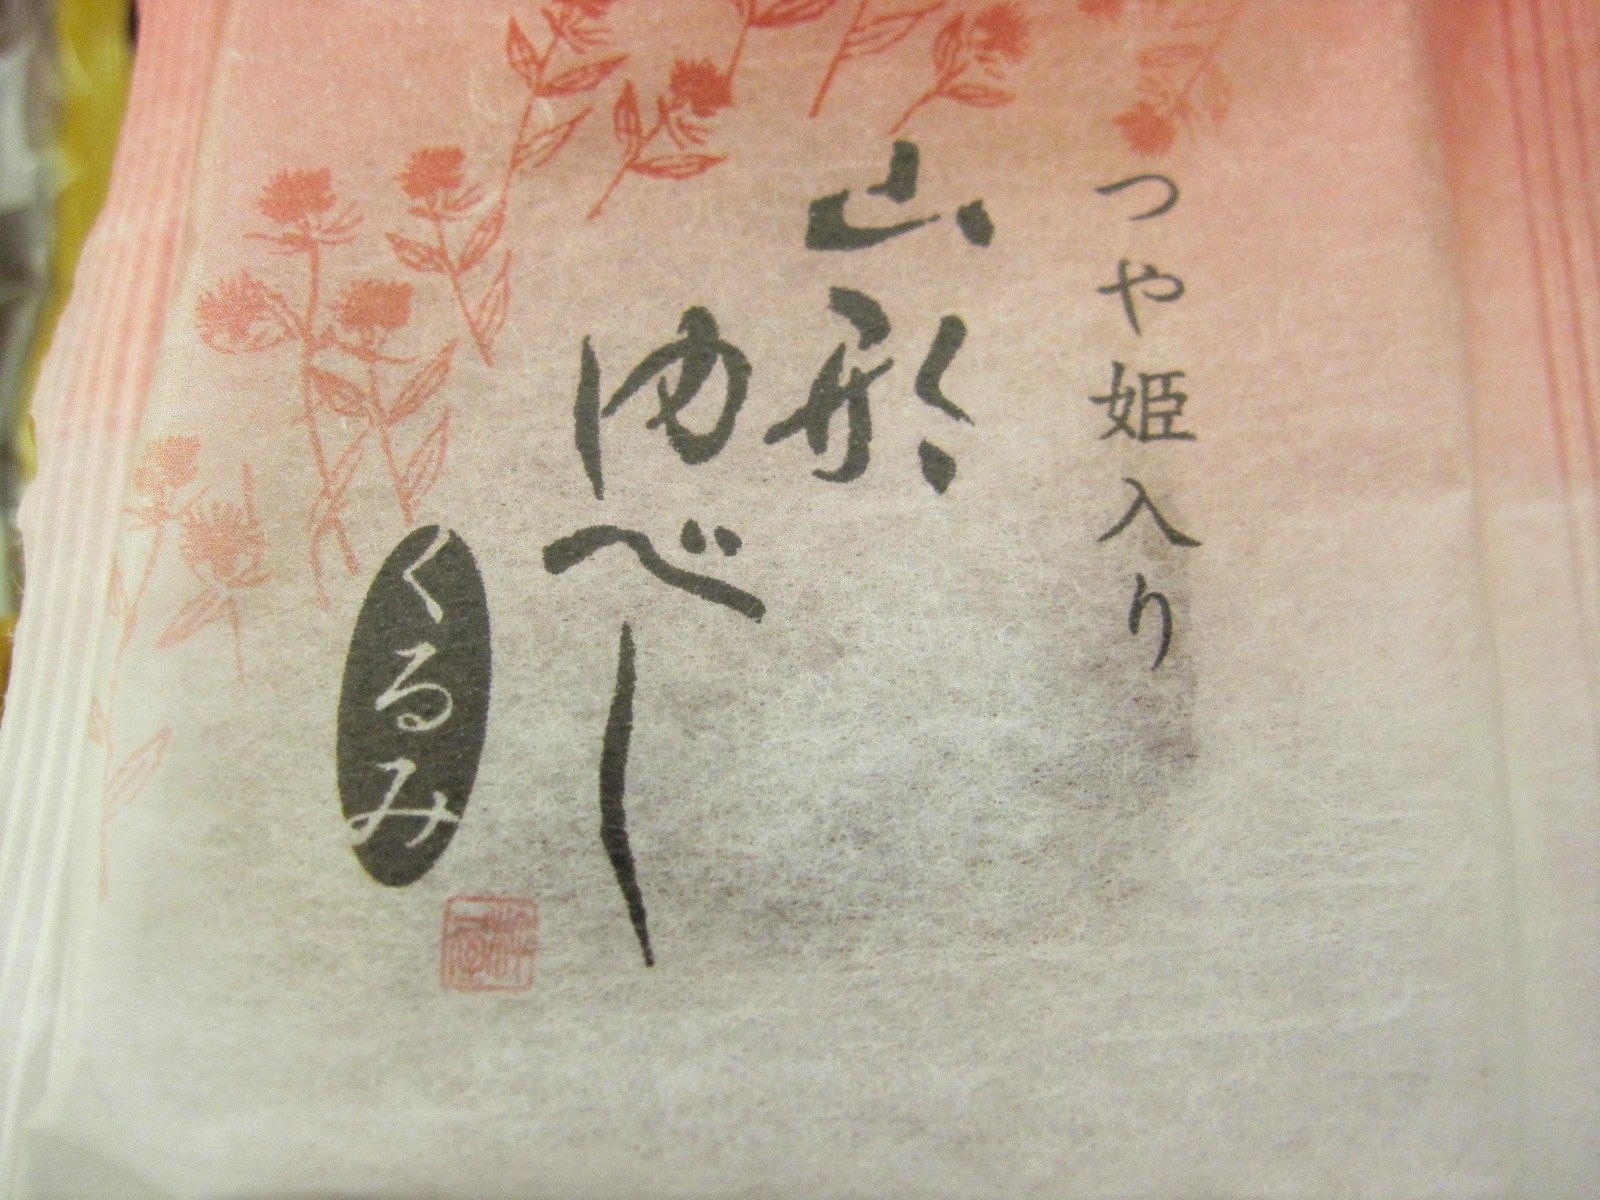 つや姫入り
山形
ゆべし
くるみ